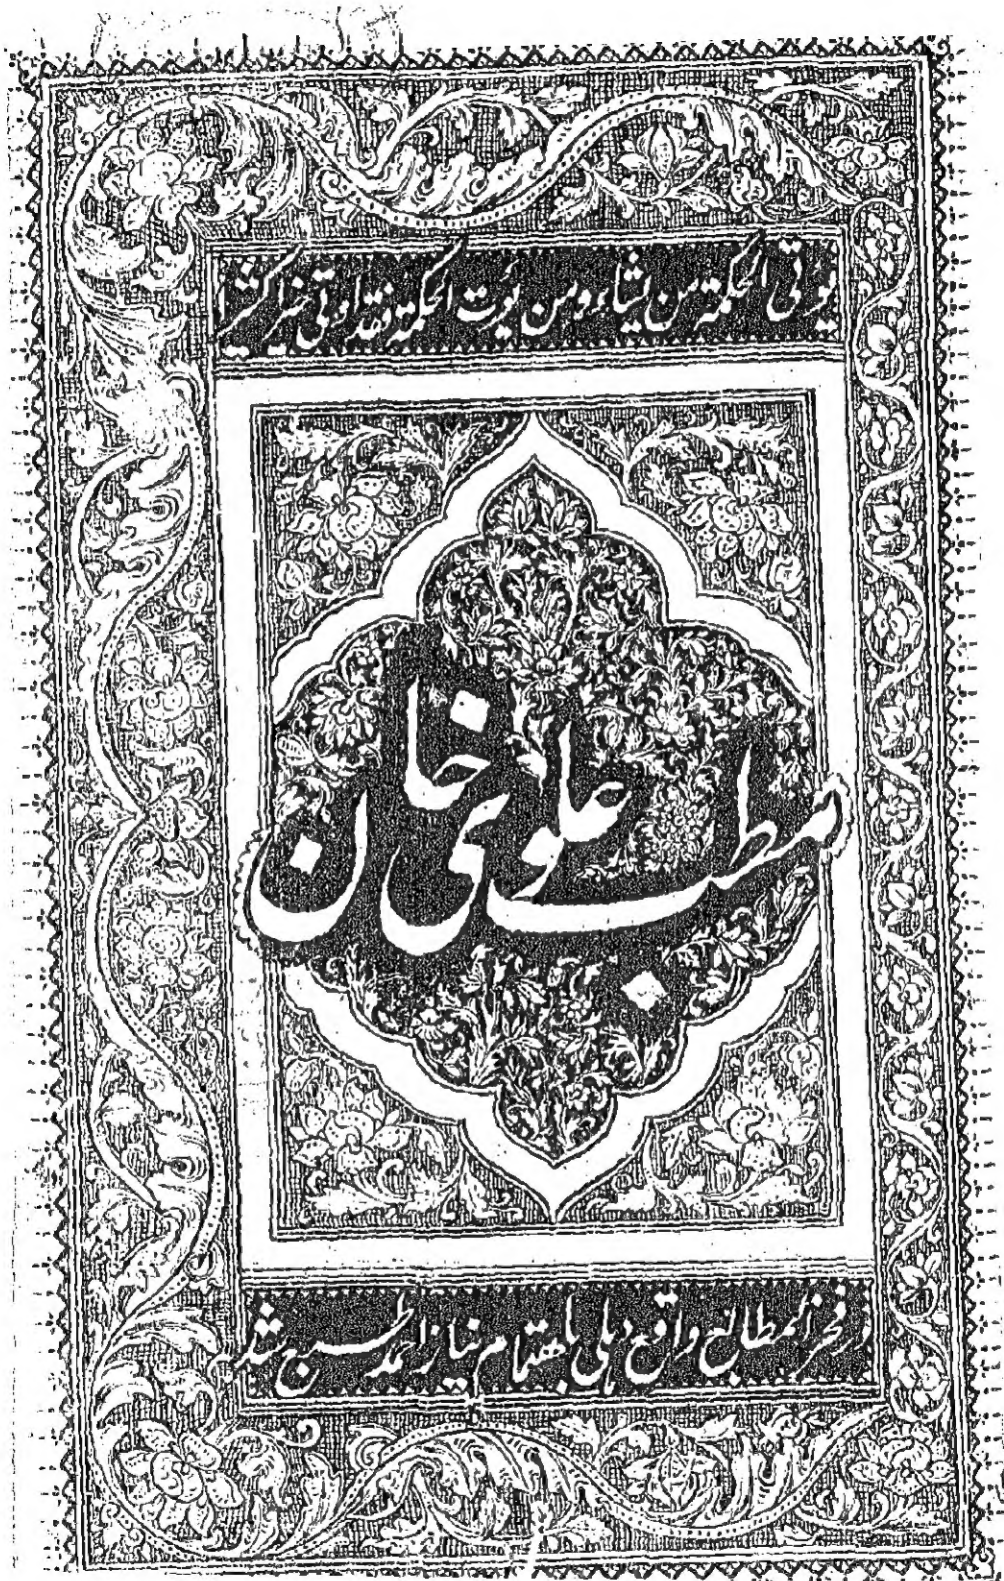 یؤتی الحکمة من یشاء ومن یؤت الحکمة فقد اوتی خیرا کثیرا
مطب علوی خان
در فخر المطابع واقع دہلی باہتمام نیاز احمد طبع شد